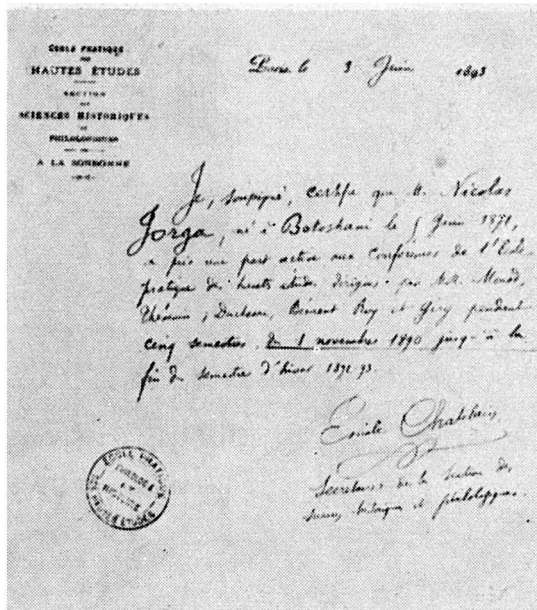 ÉCOLE PRATIQUE
DES
HAUTES ÉTUDES
SECTION
DES
SCIENCES HISTORIQUES
ET
PHILOLOGIQUES
A LA SORBONNE
Paris le 3 Juin 1893
Je, soussigné, certifie que M. Nicolas
Jorga, né à Botoshani le 5 Juin 1871,
a pris une part active aux conférences de l'École
pratique des hautes études dirigées par MM. Monod,
Thévenin, Duchesne, Bémont Roy et Giry pendant
cinq semestres, du 1 novembre 1890 jusqu'à la
fin du semestre d'hiver 1892-93.
Emile Chatelain
Secrétaire de la Section des
sciences historiques et philologiques.
ÉCOLE PRATIQUE
DES HAUTES ÉTUDES